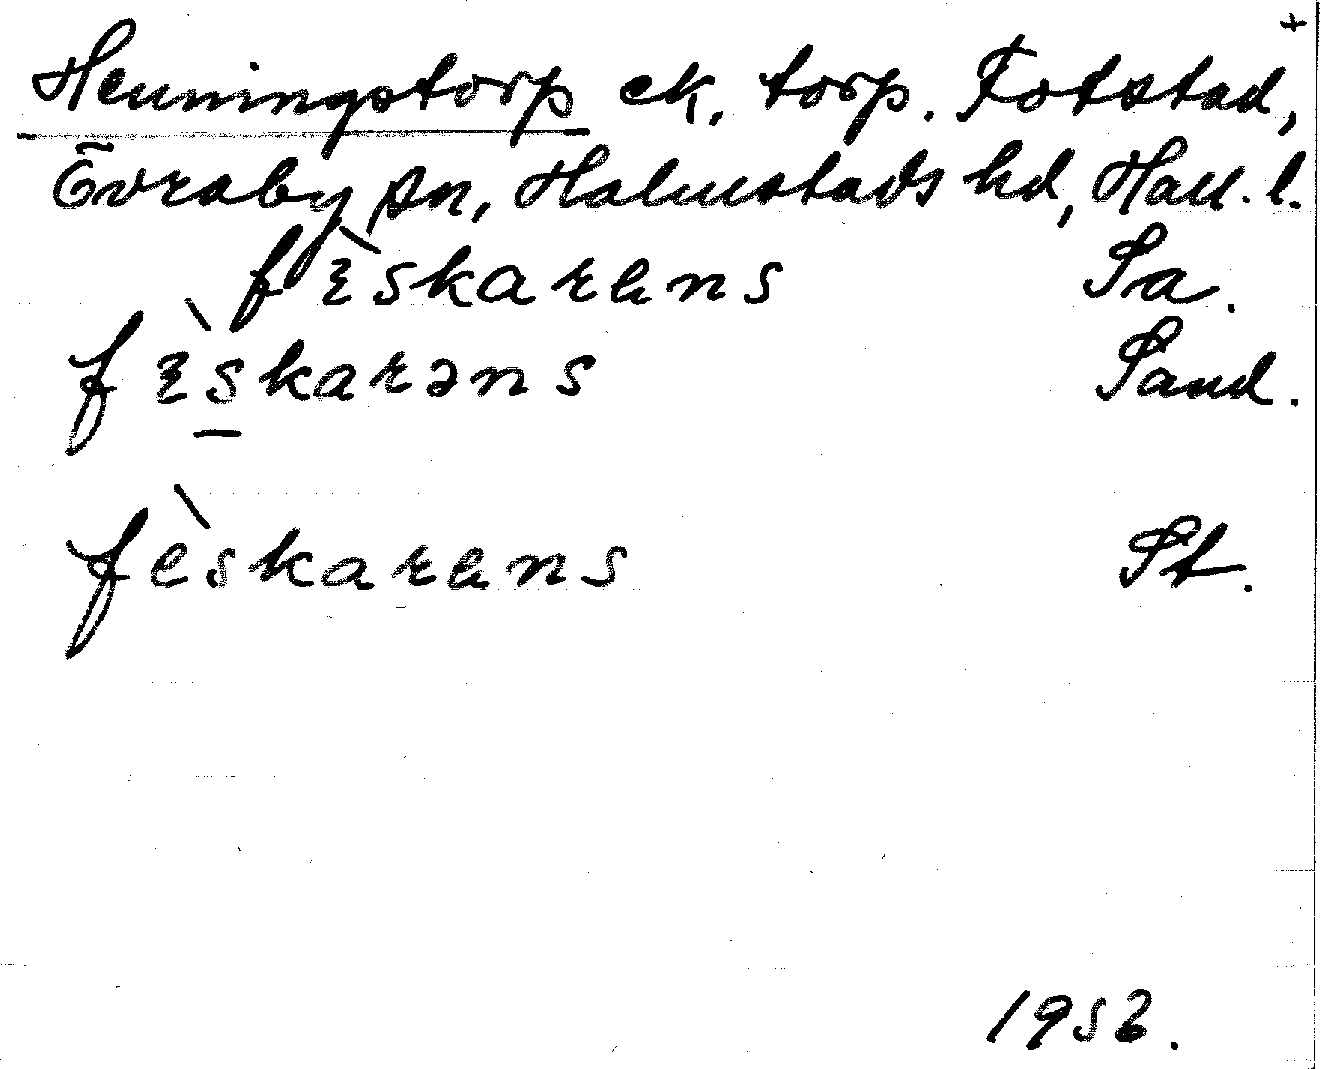 +
Henningstorp ek. torp. Fotstad,
Övraby sn, Halmstads hd, Hall. l.
fɛ̀skarens Sa.
fɛ̀skarəns Sand.
fèskarens St.
1952.